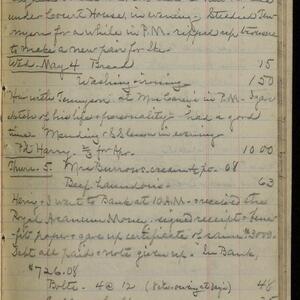 under Court House, in evening. Studied Ten-
nyson for a while in P.M. ripped up trousers
to make a new pair for Ike.
Wed. May 4 Bread 15
Washing + ironing 1 50
Hour with Tennyson at Mrs Carey's in P.M.
sketch of his life + personality. had a good
time. Mending + S.S. lesson in evening.
Pd Harry 2/3 for Apr. 10.00
Thurs. 5. Mrs Burrows, cream Apr. 08
Beef, Laundons. 63
Harry + I went to Bank at 10 A.M. + received the
Royal Arcanum Money. signed receipt + bene-
fit paper + gave up certificate of claim $3000.
Debt all paid + note given up. In Bank,
$726.08
Bolts - 4 @ 12 48